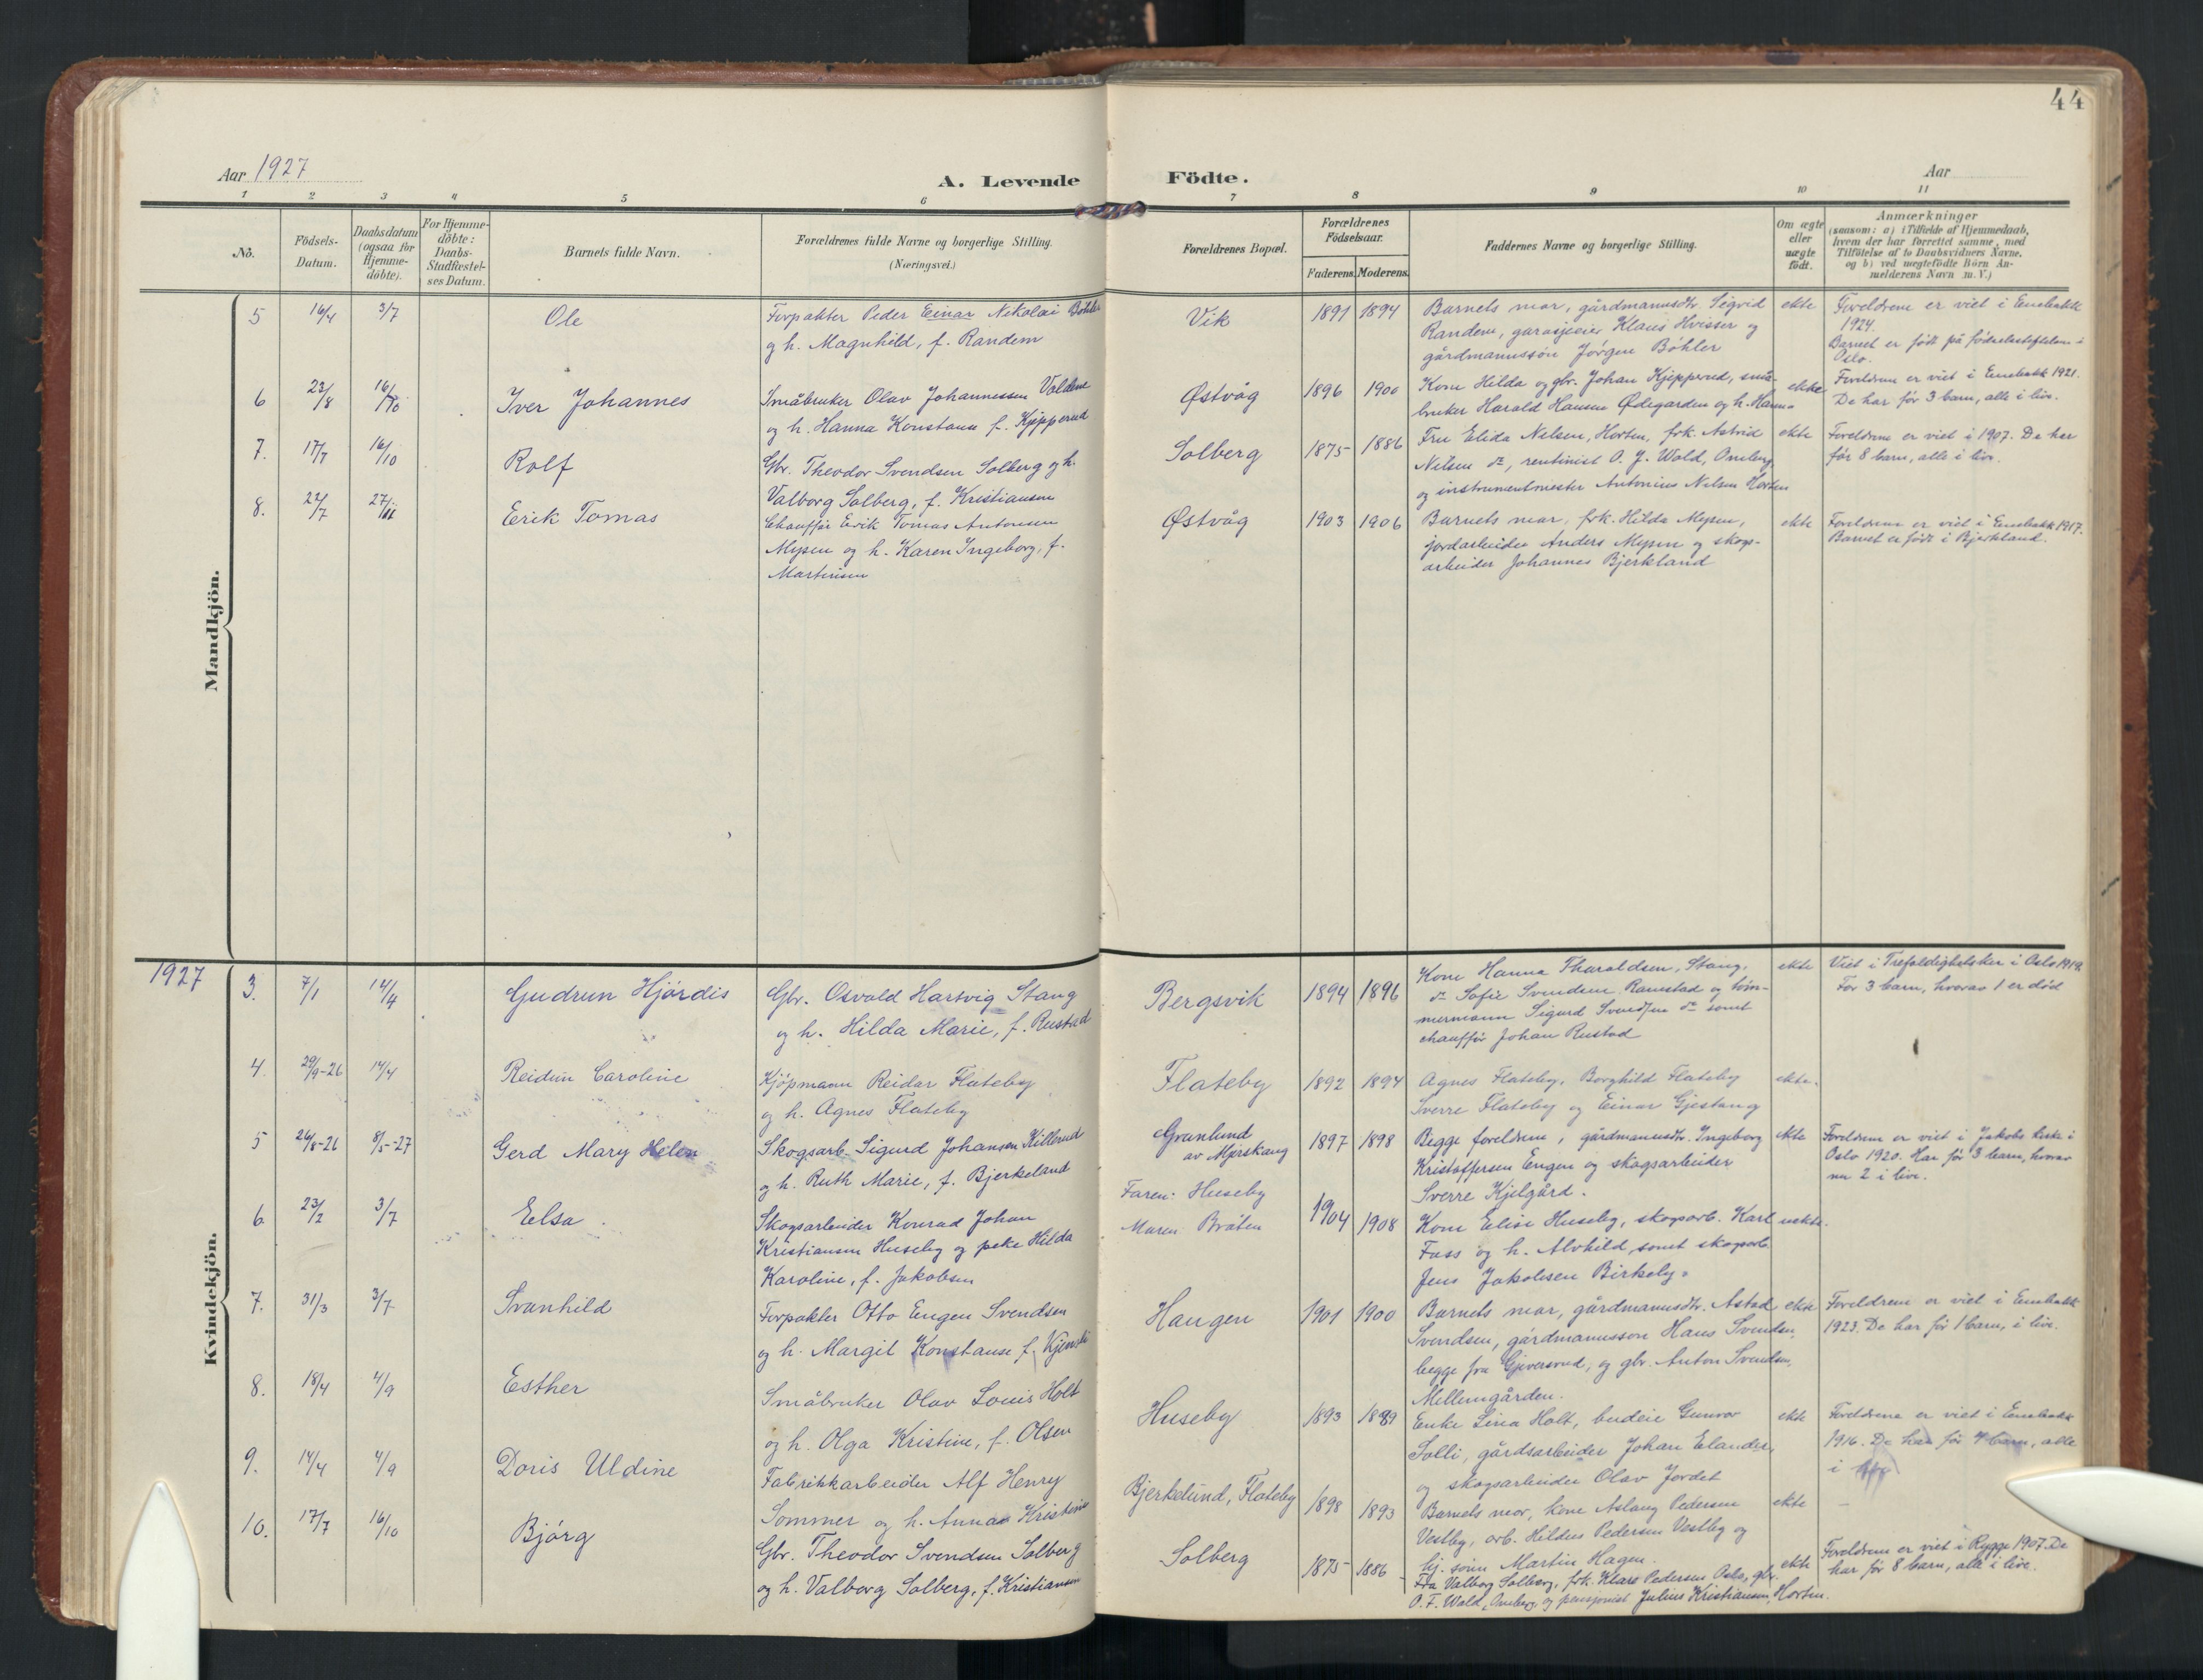 44
Aar 1927
A. Levende Födte.
Aar
1 2 3 4 5 6 7 8 9 10 11
No.
Födsels-
Datum.
Daabsdatum
(ogsaa for
Hjemme-
döbte).
For Hjemme-
döbte:
Daabs-
Stadfæstel-
ses Datum.
Barnets fulde Navn.
Forældrenes fulde Navne og borgerlige Stilling.
(Næringsvei.)
Forældrenes Bopæl.
Forældrenes
Födselsaar.
Faderens. Moderens.
Faddernes Navne og borgerlige Stilling.
Om ægte
eller
uægte
födt.
Anmærkninger
(saasom: a) i Tilfælde af Hjemmedaab,
hvem der har forrettet samme, med
Tilföielse af to Daabsvidners Navne,
og b) ved uægtefödte Börn An-
melderens Navn m. V.)
Mandkjön.
5 16/4 3/7 Ole
Forpakter Peder Einar Nikolai Böhler
og h. Magnhild, f. Randem
Vik 1891 1894
Barnets mor, gårdmannsdtr. Sigrid
Randem, garasjeeier Klaus Hvisser og
gårdmannssön Jörgen Böhler
ekte
Foreldrene er viet i Enebakk
1924.
Barnet er födt på födselsstiftelsen i
Oslo.
6 23/8 16/10 Iver Johannes
Småbruker Olav Johannessen Valdene
og h. Hanna Konstanse f. Kjepperud
Østvåg 1896 1900
Kone Hilda og gbr. Johan Kjepperud, små-
bruker Harald Hansen Ødegarden og h. Hanna
ekte
Foreldrene er viet i Enebakk 1921.
De har för 3 barn, alle i live.
7. 17/7 16/10 Rolf
Gbr. Theodor Svendsen Solberg og h.
Valborg Solberg, f. Kristiansen
Solberg 1875 1886
Fru Elida Nilsen, Horten, frk. Astrid
Nilsen, rentinist O. J. Wold, Omberg,
og instrumentmester Antonius Nilsen Horten
ekte
Foreldrene er viet i 1907. De har
för 8 barn, alle i live.
8. 22/7 27/11 Erik Tomas
Chauffør Erik Tomas Antonsen
Mysen og h. Karen Ingeborg, f.
Martinsen
Østvåg 1903 1906
Barnets mor, frk. Hilda Mysen,
jordarbeider Anders Mysen og skogs-
arbeider Johannes Bjerkland
ekte
Foreldrene er viet i Enebakk 1917.
Barnet er födt i Bjerkland.
1927
Kvindekjön.
3. 7/1 14/4 Gudrun Hjördis
Gbr. Osvald Hartvig Stang
og h. Hilda Marie, f. Rustad
Bergsvik 1894 1896
Kone Hanna Tharaldsen, Stang,
Sofie Svendsen Ramstad og töm-
mermann Sigurd Svendsen samt
chauffør Johan Rustad
ekte
Viet i Trefoldighetskir. i Oslo 1919.
För 3 barn, hvorav 1 er död
4. 29/9-26 14/4 Reidun Caroline
Kjöpmann Reidar Flateby
og h. Agnes Flateby
Flateby 1892 1894
Agnes Flateby, Borghild Flateby
Sverre Flateby og Einar Gjestang
ekte.
5 26/8-26 8/5-27 Gerd Mary Helen
Skogsarb. Sigurd Johansen Killerud
og h. Ruth Marie, f. Bjerkeland
Granlund
av Mjerskaug 1897 1898
Begge foreldrene, gårdmannsdtr. Ingeborg
Kristoffersen Engen og skogsarbeider
Sverre Kjelgård.
ekte
Foreldrene er viet i Jakobs kirke i
Oslo 1920. Har för 3 barn, hvorav
nu 2 i live.
6. 23/2 3/7 Elsa.
Skogsarbeider Konrad Johan
Kristiansen Huseby og pike Hilda
Karoline, f. Jakobsen
Faren: Huseby
Moren Bråten
1904 1908
Kone Elise Huseby, skogarb. Karl
Foss og h. Alvhild, samt skogarb.
Jens Jakobsen Birkeby.
uekte.
7. 31/3 3/7 Svanhild
Forpakter Otto Eugen Svendsen
og h. Margit Konstanse f.
Haugen 1901 1900
Barnets mor, gårdmannsdtr. Astad
Svendsen, gårdmannsson Hans Svendsen,
begge fra Gjeversrud, og gbr. Anton Svendsen,
Mellemgården.
ekte
Foreldrene er viet i Enebakk
1923. De har för 1 barn, i live.
8. 18/4 4/9 Esther
Småbruker Olav Louis Holt
og h. Olga Kristine, f. Olsen
Huseby 1893 1889
Enke Lina Holt, budeie Gunvor
Solli, gårdsarbeider Johan Elander,
og skogsarbeider Olav Jordet
ekte
Foreldrene er viet i Enebakk
1916. De har för 4 barn, alle
i live
9. 14/4 4/9 Doris Uldine
Fabrikkarbeider Alf Henry
Sommer og h. Anna Kristine
Bjerkelund, Flateby 1898 1893
Barnets mor, kone Aslaug Pedersen
Vestby, arb. Hildus Pedersen Vestby og
sönn Martin Hagen.
ekte
–
10. 17/7 16/10 Björg
Gbr. Theodor Svendsen Solberg
og h. Valborg Solberg, f. Kristiansen
Solberg 1875 1886
Fru Valborg Solberg, frk. Klara Pedersen Oslo, gbr.
O. F. Wold, Omberg og pensjonist Julius Kristiansen, Horten.
ekte
Foreldrene er viet i Rygge 1907. De
har för 8 barn, alle i live.